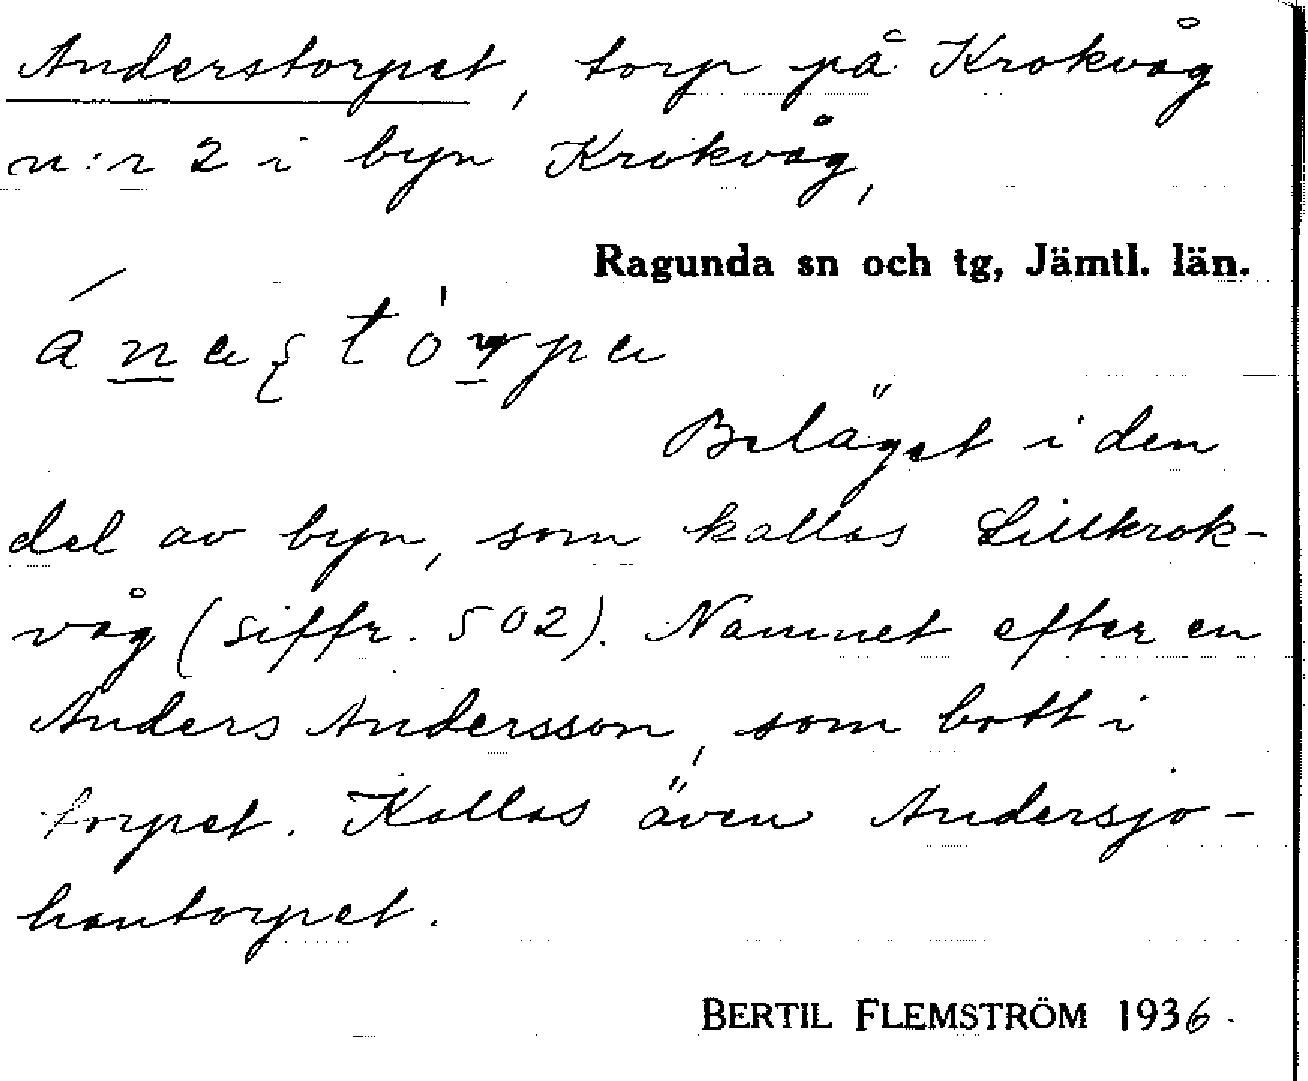 Anderstorpet, torp på Krokvåg
n:r 2 i byn Krokvåg,
Ragunda sn och tg, Jämtl. län.
Beläget i den
del av byn, som kallas Lillkrok-
våg (siffr. 502). Namnet efter en
Anders Andersson, som bott i
torpet. Kallas även Andersjo-
hantorpet.
BERTIL FLEMSTRÖM 1936.